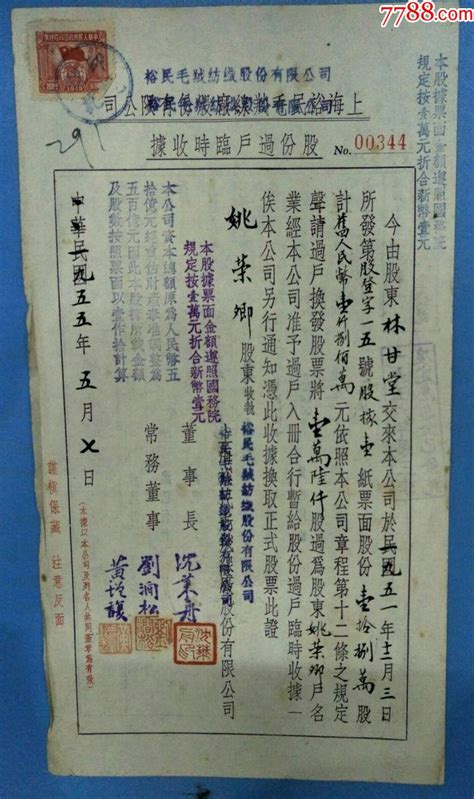 7788.com
裕民毛絨紡織股份有限公司
上海裕民毛絨線廠股份有限公司
股份過戶臨時收據
No. 00344
本股據票面金額遵照國務院
規定按壹萬元折合新幣壹元
今由股東林甘堂交來本公司於民國五一年十二月三日
所發第股登字一五號股據壹紙票面股份壹拾捌萬股
計舊人民幣壹仟捌佰萬元依照本公司章程第十二條之規定
聲請過戶換發股票將壹萬陸仟股過為股東姚荣卿戶名
業經本公司准予過戶入冊合行暫給股份過戶臨時收據一
俟本公司另行通知憑此收據換取正式股票此證
姚荣卿股東收執
裕民毛絨紡織股份有限公司
股份有限公司
董事長
沈莱舟
常務董事
劉潤松
本股據票面金額遵照國務院
規定按壹萬元折合新幣壹元
本公司資本總額原為人民幣五
拾億元經重估財產準調整為
五百億元因此本股據所載金額
及股數按照票面以壹作拾計算
中華民國一九五五年五月七日
謹慎保藏 注意反面